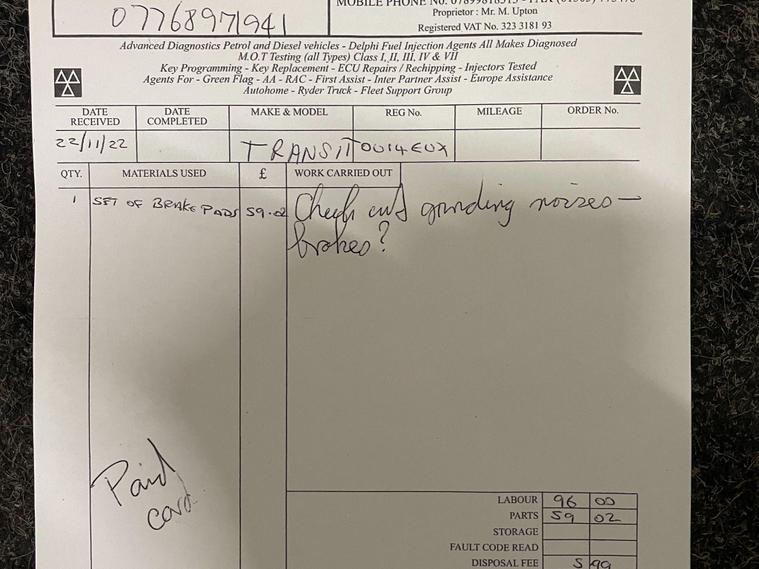 07768971941
Proprietor : Mr. M. Upton
Registered VAT No. 323 3181 93
Advanced Diagnostics Petrol and Diesel vehicles - Delphi Fuel Injection Agents All Makes Diagnosed
M.O.T Testing (all Types) Class I, II, III, IV & VII
Key Programming - Key Replacement - ECU Repairs / Rechipping - Injectors Tested
Agents For - Green Flag - AA - RAC - First Assist - Inter Partner Assist - Europe Assistance
Autohome - Ryder Truck - Fleet Support Group
DATE RECEIVED DATE COMPLETED MAKE & MODEL REG No. MILEAGE ORDER No.
22/11/22 TRANSIT OU14EUX
QTY. MATERIALS USED £ WORK CARRIED OUT
1 SET OF BRAKE PADS 59.02 Check out grinding noises -
brakes?
Paid
card
LABOUR 96 00
PARTS 59 02
STORAGE
FAULT CODE READ
DISPOSAL FEE 5 99